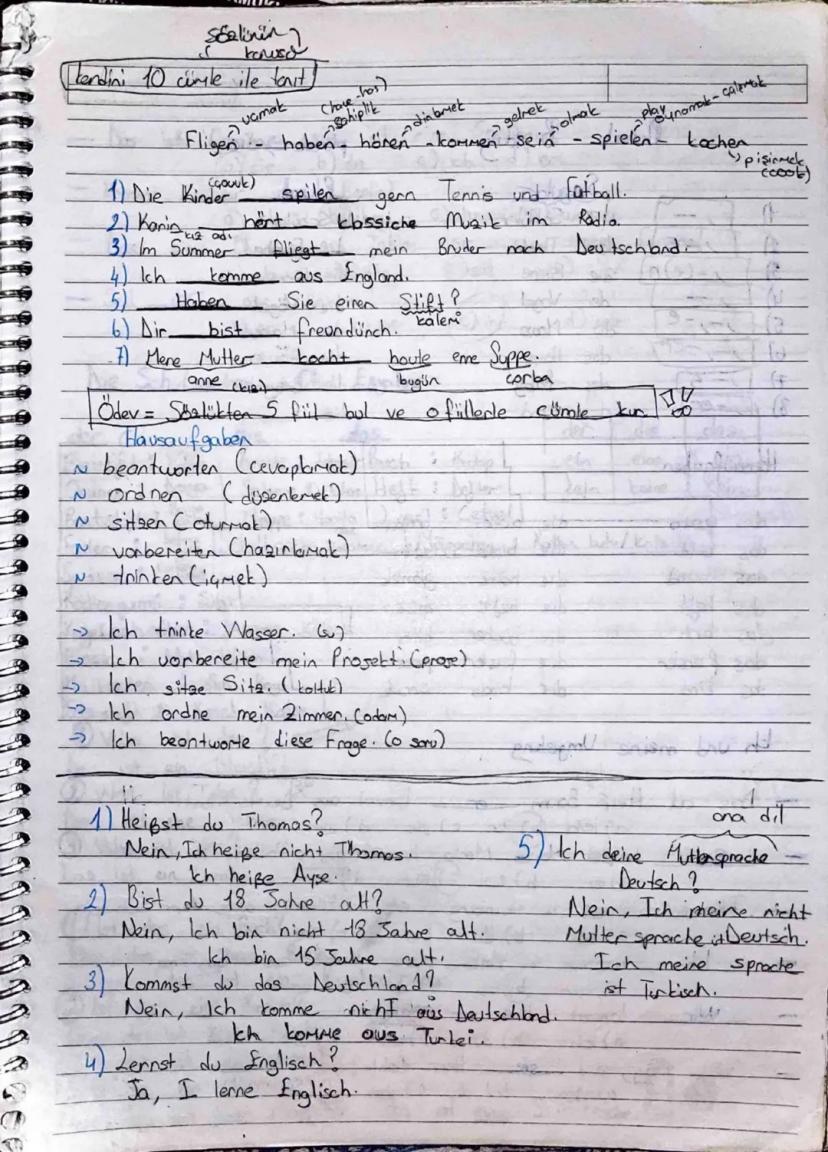 sözlünün
konusu
kendini 10 cümle ile tanıt
uçmak (have-has) sahiplik dinlemek gelmek olmak play oynamak-çalmak
Fligen - haben - hören - kommen - sein - spielen - kochen
pişirmek (cook)
(çocuk)
1) Die Kinder spilen gern Tennis und Fußball.
2) Karin hört klassiche Muzik im Radio.
kız adı
3) Im Summer fliegt mein Bruder nach Deutschland.
4) Ich komme aus England.
5) Haben Sie einen Stift?
kalem
6) Dir bist freundünch.
7) Mene Mutter kocht houte eme Suppe.
anne (kız) bugün çorba
Ödev = Sözlükten 5 fiil bul ve o fiillerle cümle kur.
Hausaufgaben
~ beantworten (cevaplamak)
~ ordnen (düzenlemek)
~ sitzen (oturmak)
~ vorbereiten (hazırlamak)
~ trinken (içmek)
→ Ich trinke Wasser. (su)
→ Ich vorbereite mein Projekt. (proje)
→ Ich sitze Sitz. (koltuk)
→ Ich ordne mein Zimmer. (odam)
→ Ich beantworte diese Frage. (o soru)
1) Heißst du Thomas?
Nein, Ich heiße nicht Thomas.
Ich heiße Ayşe.
2) Bist du 18 Jahre alt?
Nein, Ich bin nicht 18 Jahre alt.
Ich bin 15 Jahre alt.
3) Kommst du das Deutschland?
Nein, Ich komme nicht aus Deutschland.
Ich komme aus Turkei.
4) Lernst du Englisch?
Ja, I lerne Englisch.
ana dil
5) Ich deine Muttersprache
Deutsch?
Nein, Ich meine nicht
Mutter sprache ist Deutsch.
Ich meine sprache
ist Turkisch.